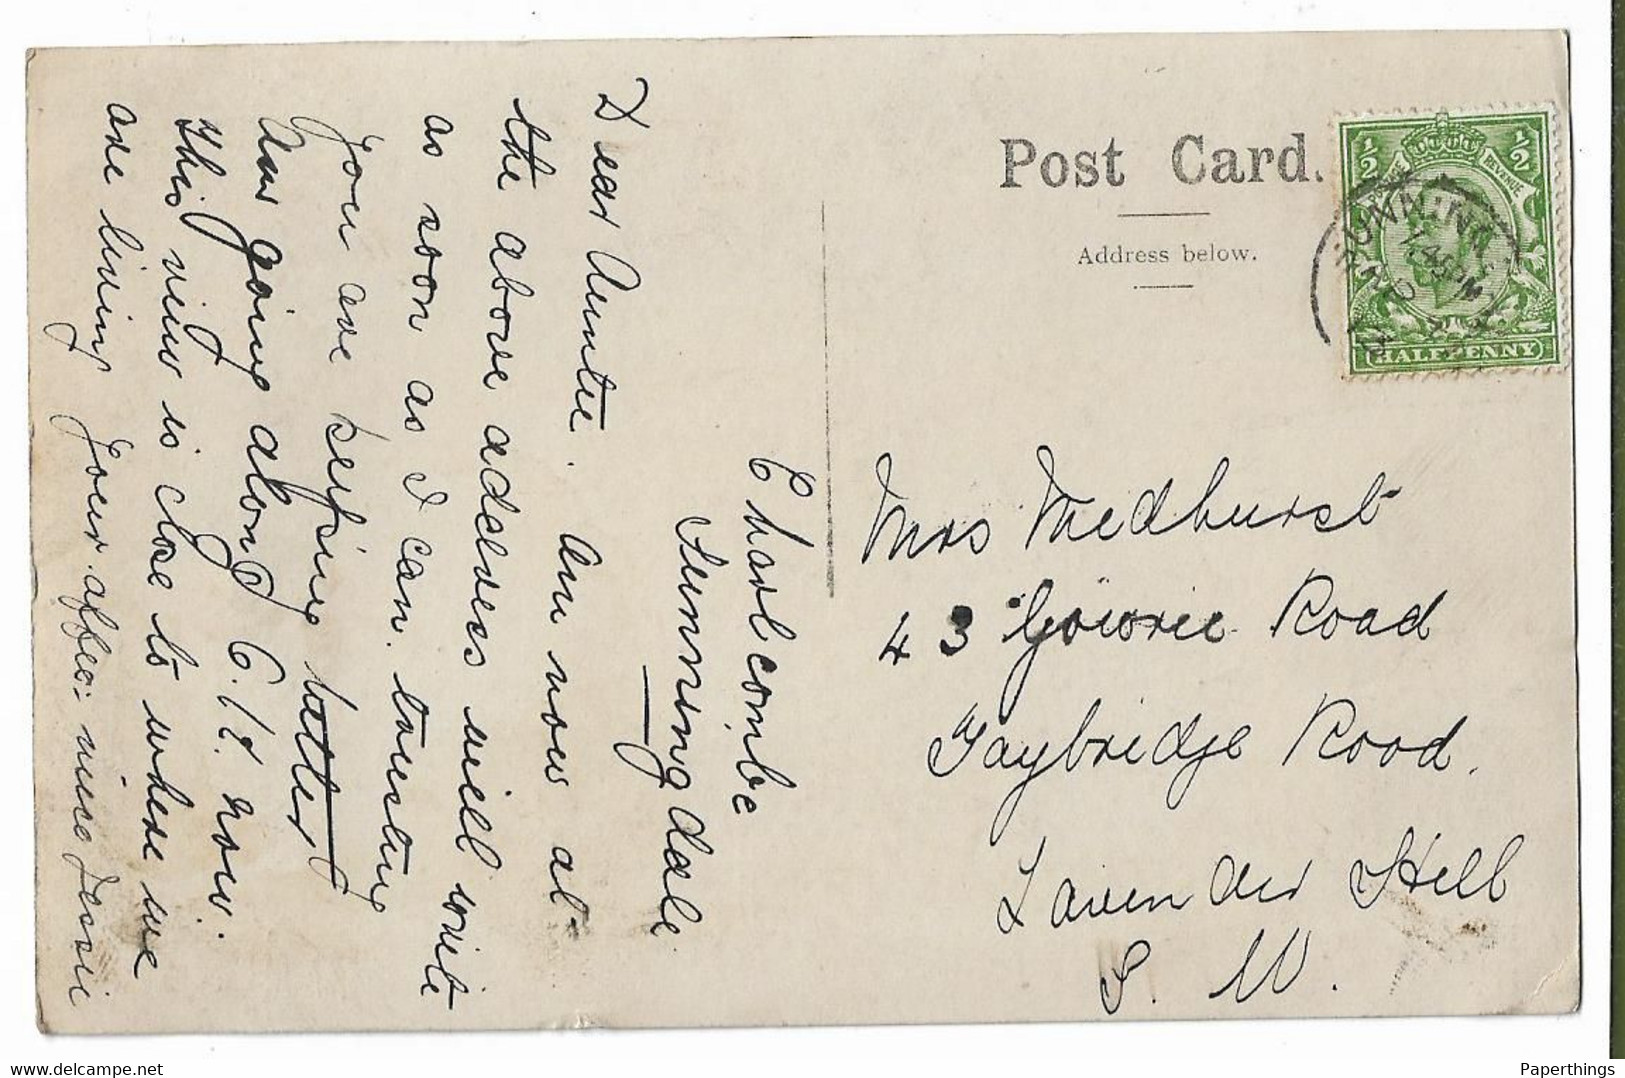 Charlcombe
Sunningdale
Dear Auntie. Am now at
the above address will write
as soon as I can. trusting
you are keeping better,
Am going along O.K. now.
This view is close to where we
are living Your affec: niece Jessie
Post Card.
Address below.
1/2 REVENUE 1/2
HALFPENNY
SUNNING
Mrs Medhurst
43 Gowrie Road
Taybridge Road.
Lavender Hill
S. W.
delcampe.net
Paperthings